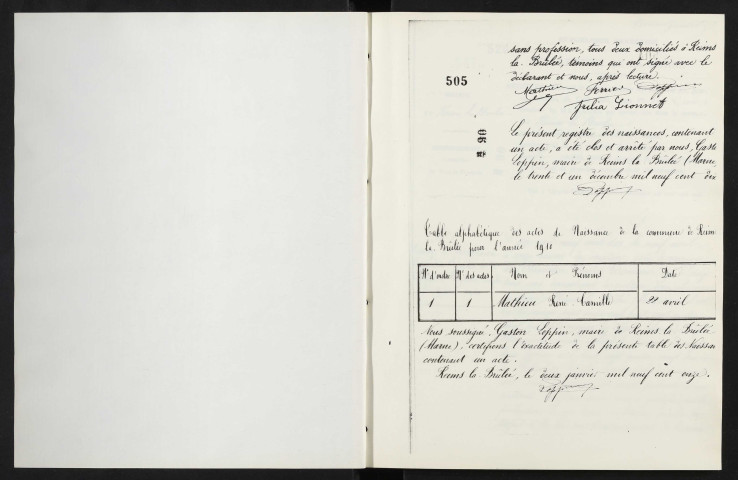 sans profession, tous deux domiciliés à Reims
la-Brûlée, témoins qui ont signé avec le
déclarant et nous, après lecture.
505
Mathieu
Julia Lionnet
Le présent registre des naissances, contenant
un acte, a été clos et arrêté par nous, Gasto
Coppin, maire de Reims la Brûlée (Marne,
le trente et un décembre mil neuf cent dix
Table alphabétique des actes de Naissance de la commune de Reim
la-Brûlée pour l'année 1910
N° d'ordre N° des actes Nom et Prénoms Date
1 1 Mathieu René Camille 21 avril
Nous soussigné, Gaston Coppin, maire de Reims la Brûlée
(Marne), certifions l'exactitude de la présente table des Naissan
contenant un acte.
Reims la-Brûlée, le deux janvier mil neuf cent onze.